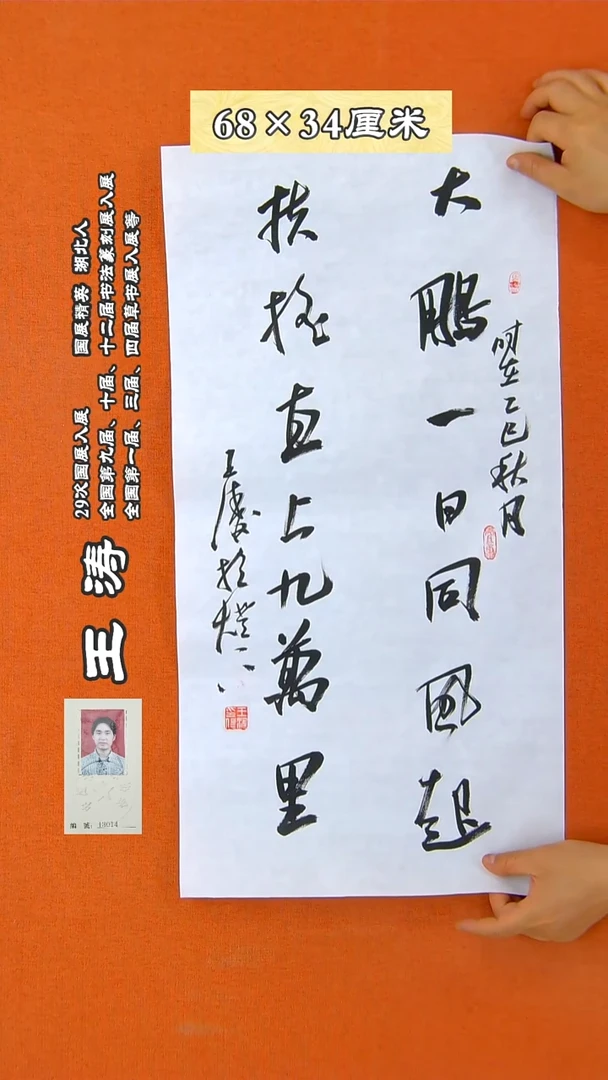 68×34厘米
大鹏一日同风起
扶摇直上九萬里
时在乙巳秋月
王涛
29次国展入展 国展精英 湖北人
全国第九届、十届、十二届书法篆刻展入展
全国第一届、三届、四届草书展入展等
王涛
编号：13014